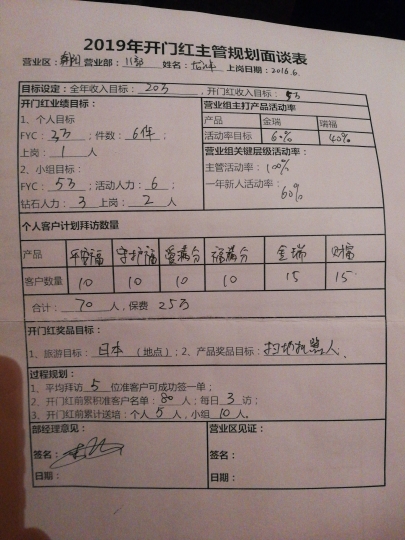 2019年开门红主管规划面谈表
营业区：朝阳 营业部：11部 姓名： 上岗日期：2016.6.
目标设定：全年收入目标：20万，开门红收入目标：5万
开门红业绩目标：
1、个人目标
FYC：3万；件数：6件；
上岗：1人
2、小组目标：
FYC：5万；活动人力：6；
钻石人力：3 上岗：2人
营业组主打产品活动率
产品 金瑞 瑞福
活动率目标 60% 40%
营业组关键层级活动率：
主管活动率：100%
一年新人活动率：60%
个人客户计划拜访数量
产品 平安福 守护福 爱满分 福满分 金瑞 财富
客户数量 10 10 10 10 15 15
合计：70人，保费 25万
开门红奖品目标：
1、旅游目标：日本（地点）；2、产品奖品目标：扫地机器人.
过程规划：
1、平均拜访5位准客户可成功签一单；
2、开门红前累积准客户名单：80人；每日3访；
3、开门红前累计送培：个人5人，小组10人。
部经理意见：
签名：
日期：
营业区见证：
签名：
日期：